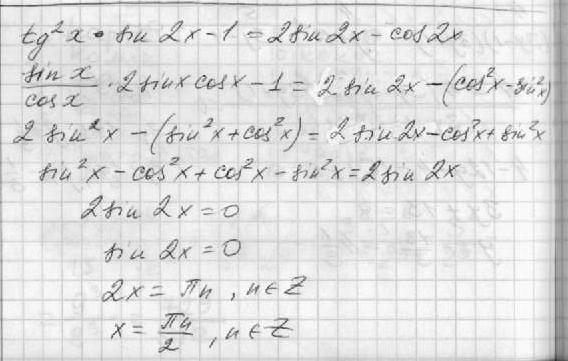 tg²x · sin 2x - 1 = 2 sin 2x - cos 2x
sin x / cos x · 2 sin x cos x - 1 = 2 sin 2x - (cos²x - sin²x)
2 sin²x - (sin²x + cos²x) = 2 sin 2x - cos²x + sin²x
sin²x - cos²x + cos²x - sin²x = 2 sin 2x
2 sin 2x = 0
sin 2x = 0
2x = πn, n ∈ Z
x = πn / 2, n ∈ Z